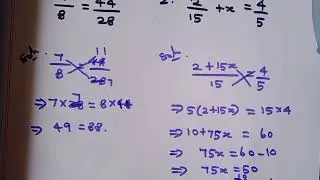 7/8 = 44/28
2. 2/15 + x = 4/5
Sol:
7/8 = 44/28 11 7
⇒ 7×28 = 8×44 7
⇒ 49 = 88.
Sol:
2+15x/15 = 4/5
⇒ 5(2+15x) = 15×4
⇒ 10+75x = 60
⇒ 75x = 60-10
⇒ 75x = 50